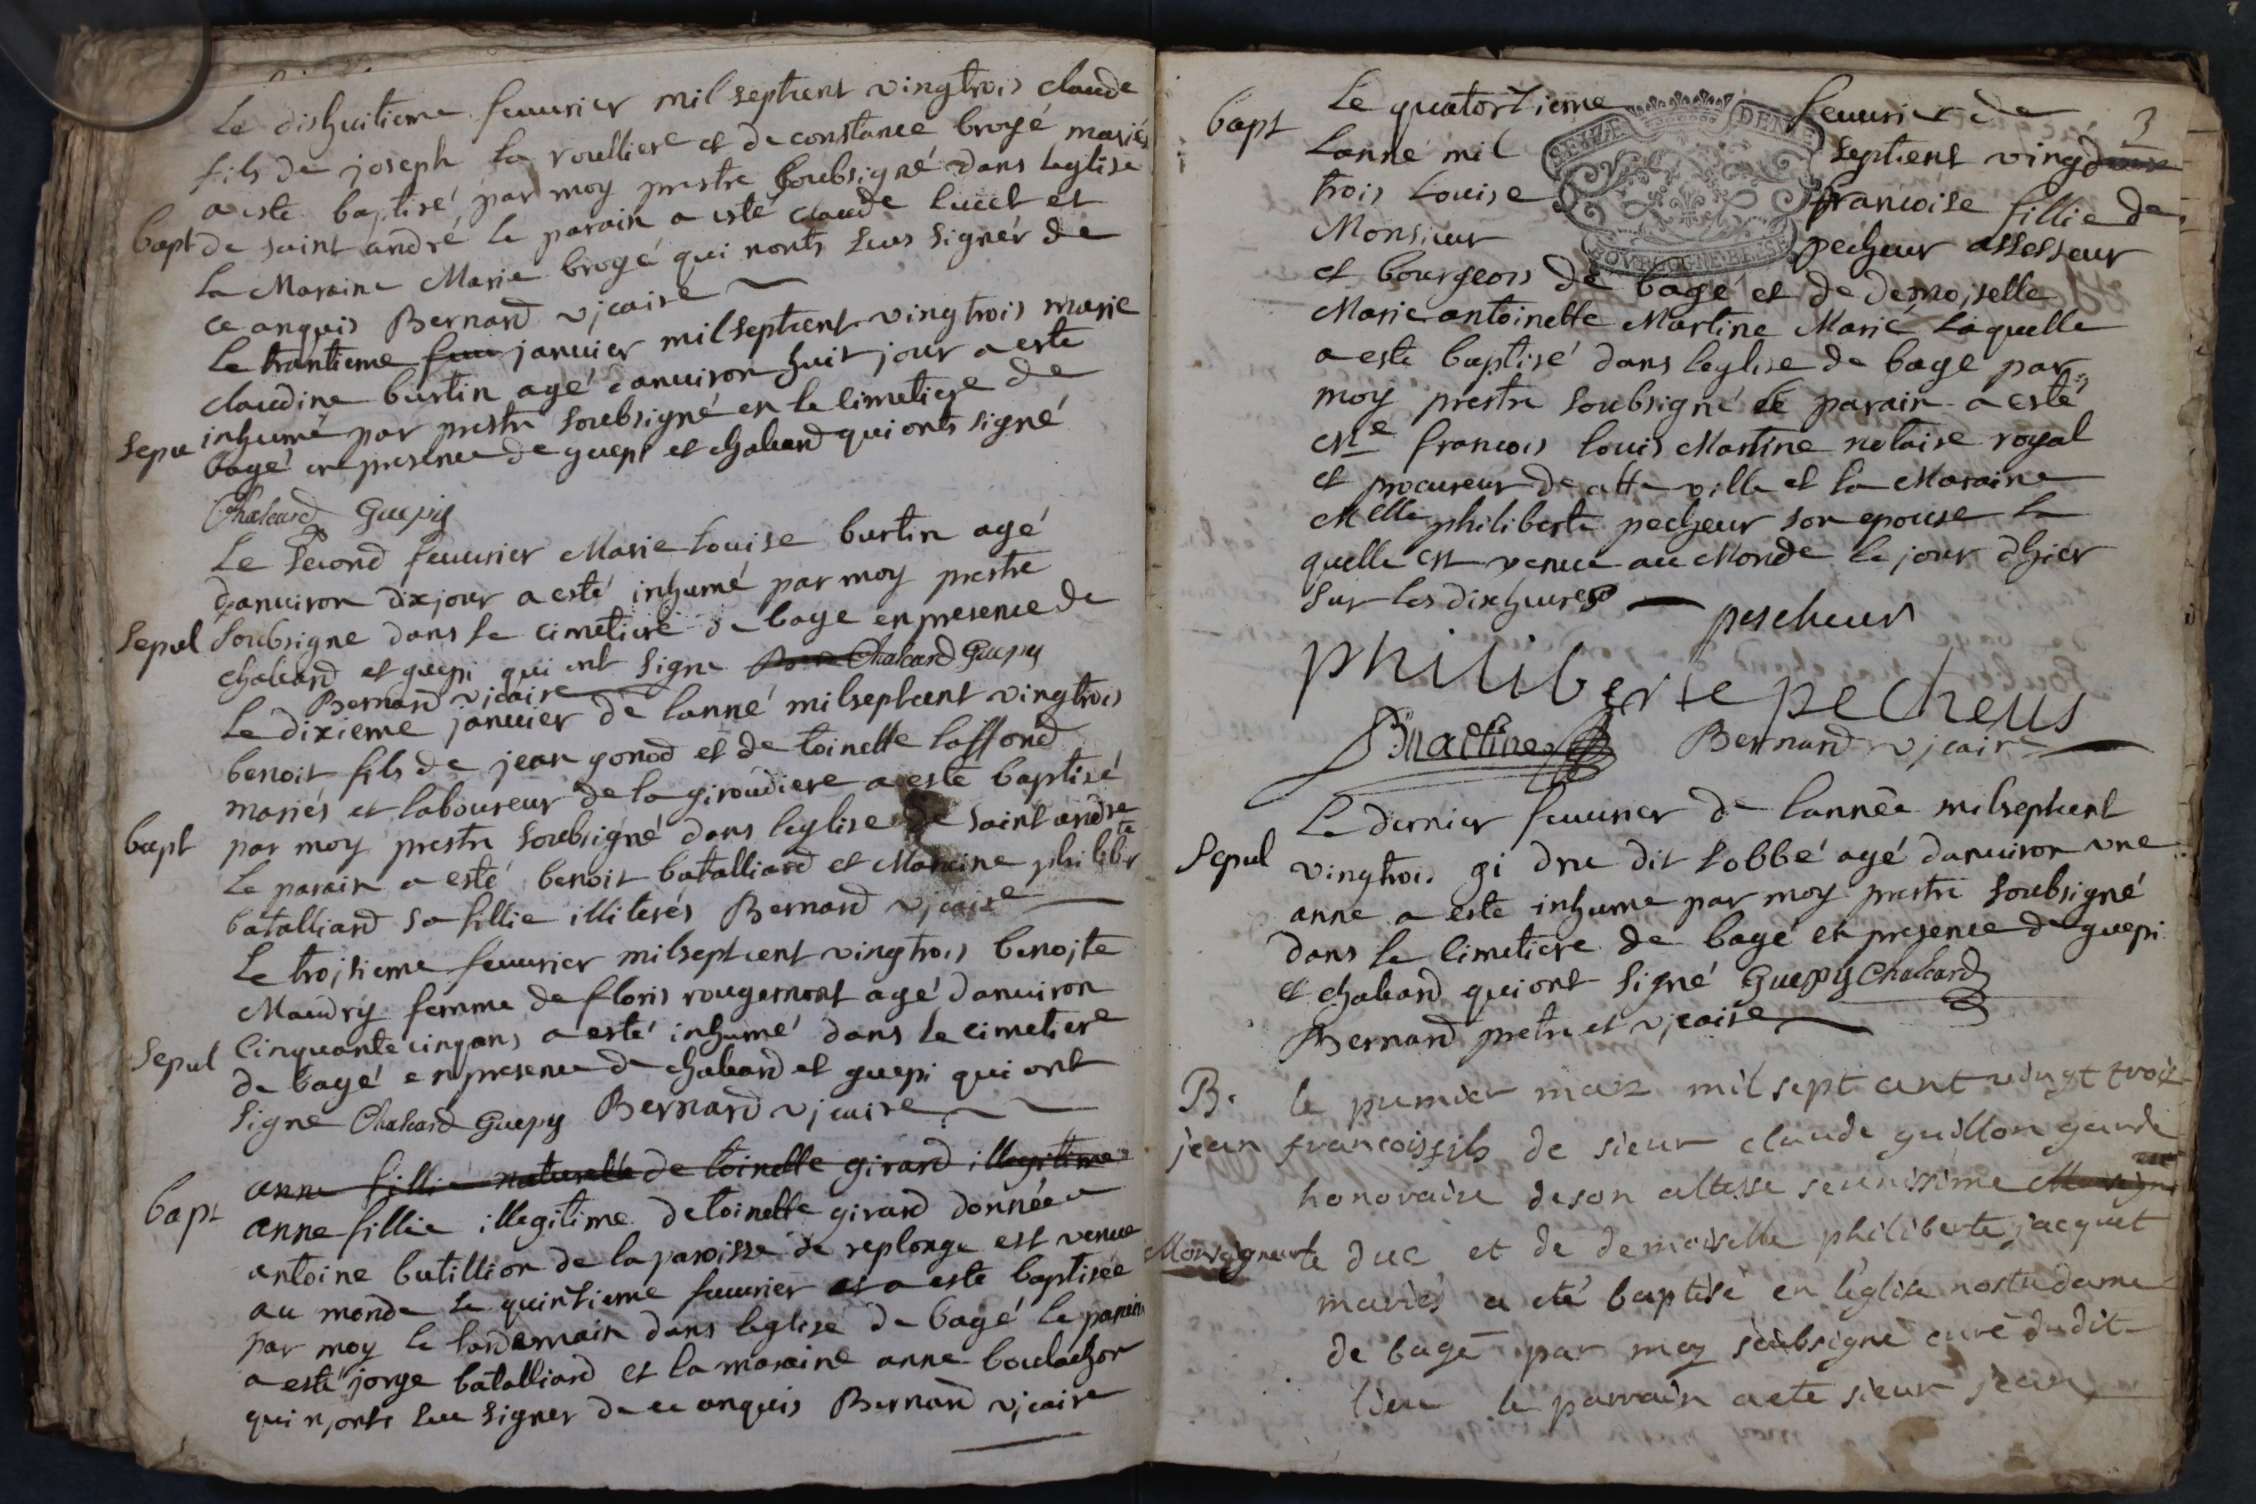 Le dishuitieme feuurier mil septcent vingtrois claude
fils de joseph la roulliere et de constance broyé mariés
a este baptisé par moy prestre soubsigné dans leglise
bapt de saint andré le parain a esté claude lucet et
la Maraine Marie broyé qui nonts sceus signér de
ce anquis Bernard vjcaire
Le trantieme feu januier mil septcent vingtrois marie
claudine burtin agé danuiron huit jour a esté
sepu inhumé par prestre soubsigné en le cimetiere de
bagé en presence de guepi et chaband qui onts signé
Chaband Guepy
Le second feuurier Marie Louise burtin agé
danuiron dix jour a esté inhumé par moy prestre
sepul soubsigne dans le cimetiere de bage en presence de
chaband et guepi qui ont signe Chaband Guepy
Bernard vjcaire
Le dixieme januier de lanné mil septcent vingtrois
benoit fils de jean gonod et de toinette laffond
mariés et laboureur de la giroudiere a esté baptisé
bapt par moy prestre soubsigné dans leglise de saint andre
Le parain a esté benoit batalliard et Maraine philibte
batalliard sa fillie illiterés Bernard vjcaire
Le troisieme feuurier mil septcent vingtrois benoite
Maudry femme de floris rougemont agé danuiron
cinquante cinq ans a esté inhumé dans le cimetiere
sepul de bagé en presence de chaband et guepi qui ont
signe Chaband Guepy Bernard vjcaire
anne fillie naturelle de toinette girard illegitime
bapt anne fillie illegitime de toinette girard donnée a
antoine butillion de la paroisse de replonge est venue
au monde le quinsieme feuurier et a esté baptisée
par moy le landemain dans leglise de bagé le parain
a esté jorge batalliard et la maraine anne boulachor
qui njonts sceu signer de ce anquis Bernard vjcaire
3
bapt Le quatorsieme feuurier de
Lanné mil septcent vingdeux
trois Louise francoise fillie de
Monsieur pecheur assesseur
SEIZE DENIE
BOVRGOGNE BRESSE
et bourgeois de bagé et de demoiselle
Marie antoinette Martine Marié Laquelle
a esté baptisé dans leglise de bage par
moy prestre soubsigné le parain a esté
Me francois louis Martine notaire royal
et procureur de cette ville et la Maraine
Melle philiberte pecheur son epouse la
quelle est venue au Monde le jour dhier
sur les dix heures
pescheur
philiberte pecheus
Martine Bernard vjcaire
Le dernier feuurier de lannée mil septcent
sepul vingtrois gi dru dit Lobbé agé danuiron une
anne a esté inhumé par moy prestre soubsigné
dans le cimetiere de bagé en presence de guepi
et chaband qui ont signé Guepy Chaband
Bernard pretre et vjcaire
B. le pumier marz mil sept cent vingt trois
jean francois fils de sieur claude guillon garde
honoraire de son altesse serenissime Monseigneur
Monseigneur le duc et de demoiselle philiberte jacquet
mariés a eté baptisé en l'eglise nostredame
de bagé par moy soubsigné curé dudit
lieu le parrain a eté sieur jean